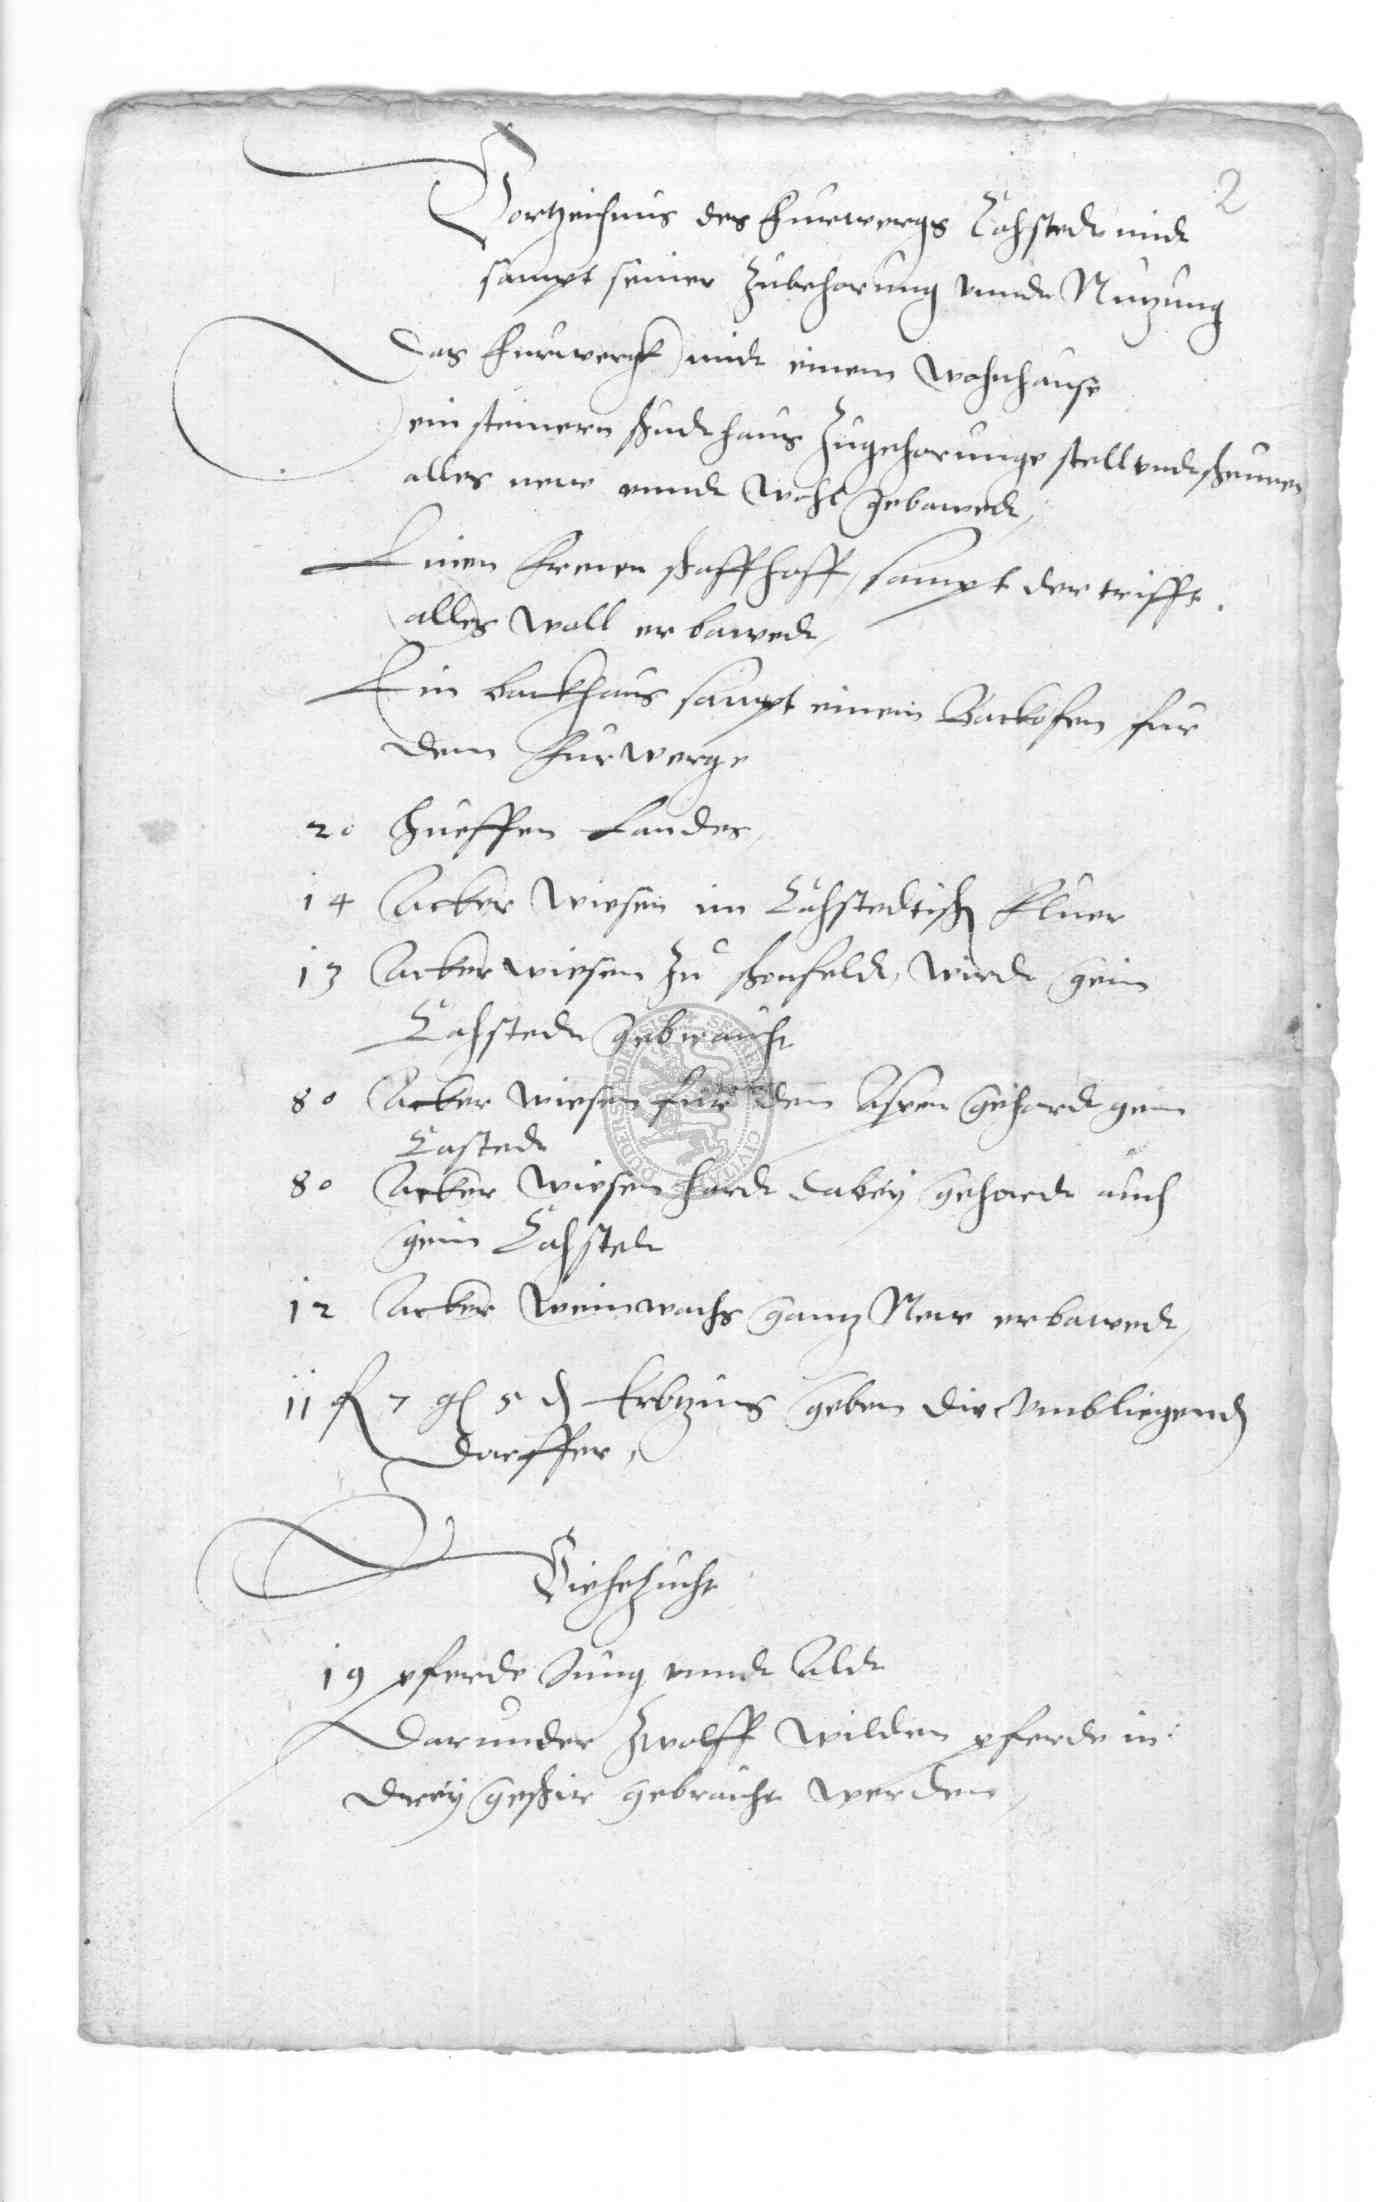 2
Vortzeichnus des Furwergs Lohstedt midt
sampt seiner Zubehorung unnd Nutzung
Das Furwergk midt einem Wohnhause
ein steinern haus Zugehorunge stell vnd scheunen
alles new vnnd Wohl gebawedt,
Einen Freien schaffhoff, sampt der trifft.
alles woll erbawedt,
Ein backhaus sampt einem Backofen fur
dem Furwerge
20 Hueffen Landes,
14 Acker Wiesen im Lohstedtisch Fluer
13 Acker wiesen zu wirdt gein
Lohstedt gebraucht
80 Acker wiesen fur dem gehordt gein
Lostedt
80 Acker Wiesen hardt dabey gehordt auch
gein Lohstedt
12 Acker Weinwachs gantz New erbawedt,
11 fl 7 gl 5 d Erbtzins geben die Vmbliegend
Dorffer,
Viehezucht
19 pferde Jung vnnd Aldt
Darunder Zwolff Wilden pferde in
drey geschir gebraucht werden,